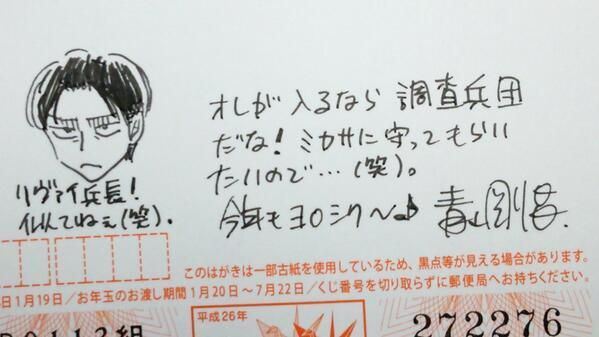 オレが入るなら調査兵団
だな!ミカサに守ってもらい
たいので…(笑)。
今年もヨロシク〜♪ 青山剛昌
リヴァイ兵長!
似てねぇ(笑)。
このはがきは一部古紙を使用しているため、黒点等が見える場合があります。
1月19日/お年玉のお渡し期間 1月20日〜7月22日/くじ番号を切り取らずに郵便局へお持ちください。
平成26年
組
272276